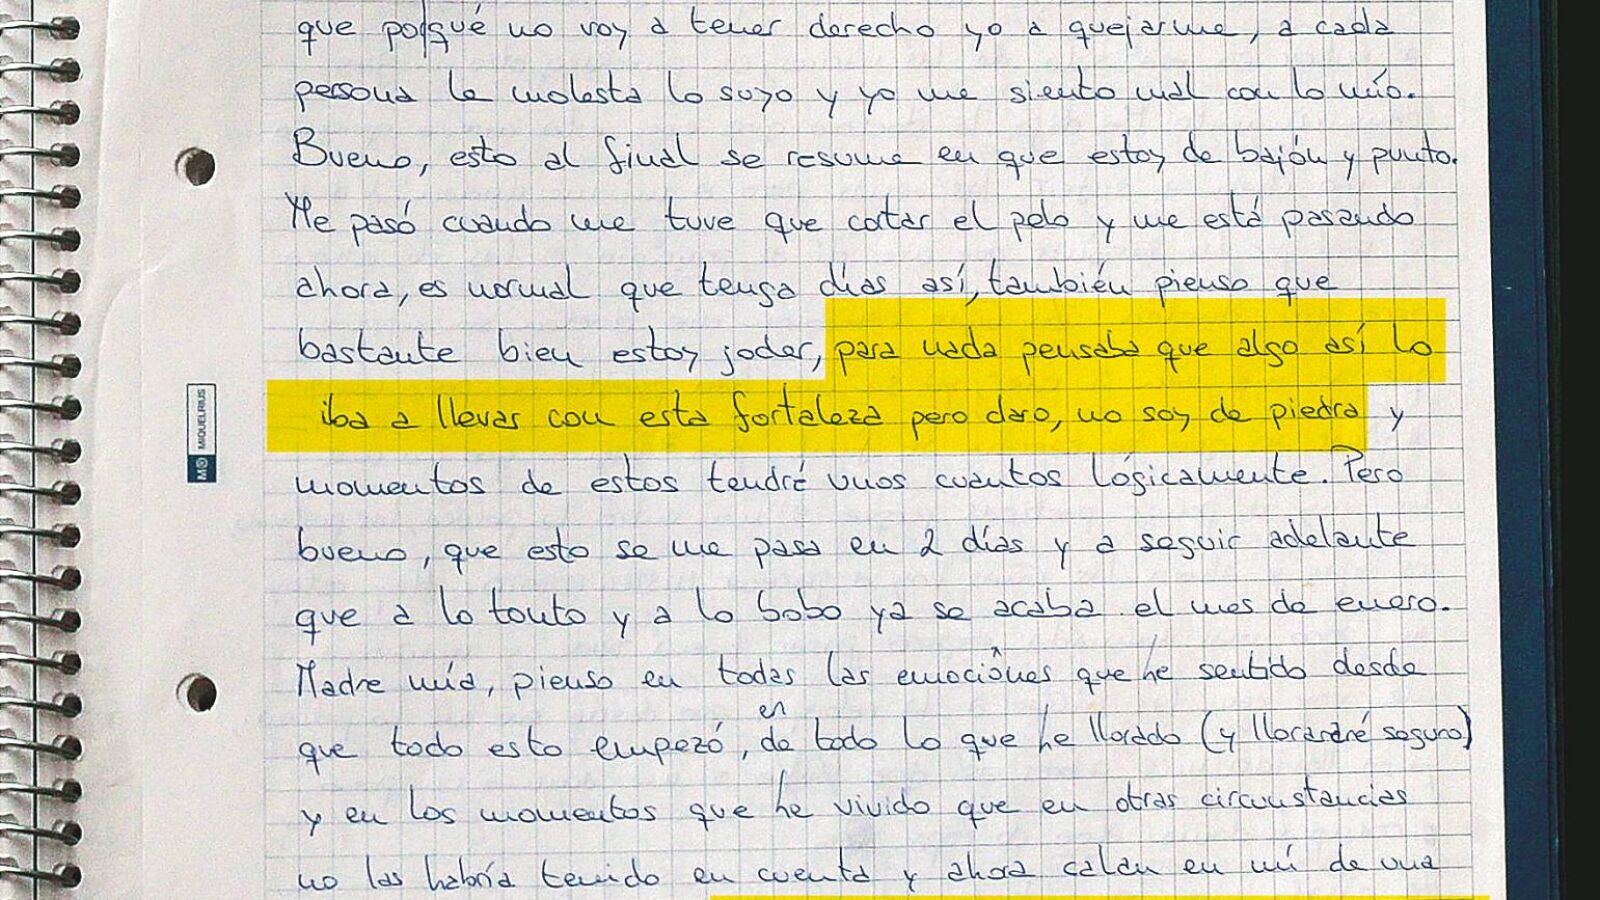 que porqué no voy a tener derecho yo a quejarme, a cada
persona le molesta lo suyo y yo me siento mal con lo mío.
Bueno, esto al final se resume en que estoy de bajón y punto.
Me pasó cuando me tuve que cortar el pelo y me está pasando
ahora, es normal que tenga días así, también pienso que
bastante bien estoy joder, para nada pensaba que algo así lo
iba a llevar con esta fortaleza pero claro, no soy de piedra y
momentos de estos tendré unos cuantos lógicamente. Pero
bueno, que esto se me pasa en 2 días y a seguir adelante
que a lo tonto y a lo bobo ya se acaba el mes de enero.
Madre mía, pienso en todas las emociones que he sentido desde
en
que todo esto empezó, de todo lo que he llorado (y lloraré seguro)
y en los momentos que he vivido que en otras circunstancias
no las habría tenido en cuenta y ahora calan en mí de una
MIQUELRIUS